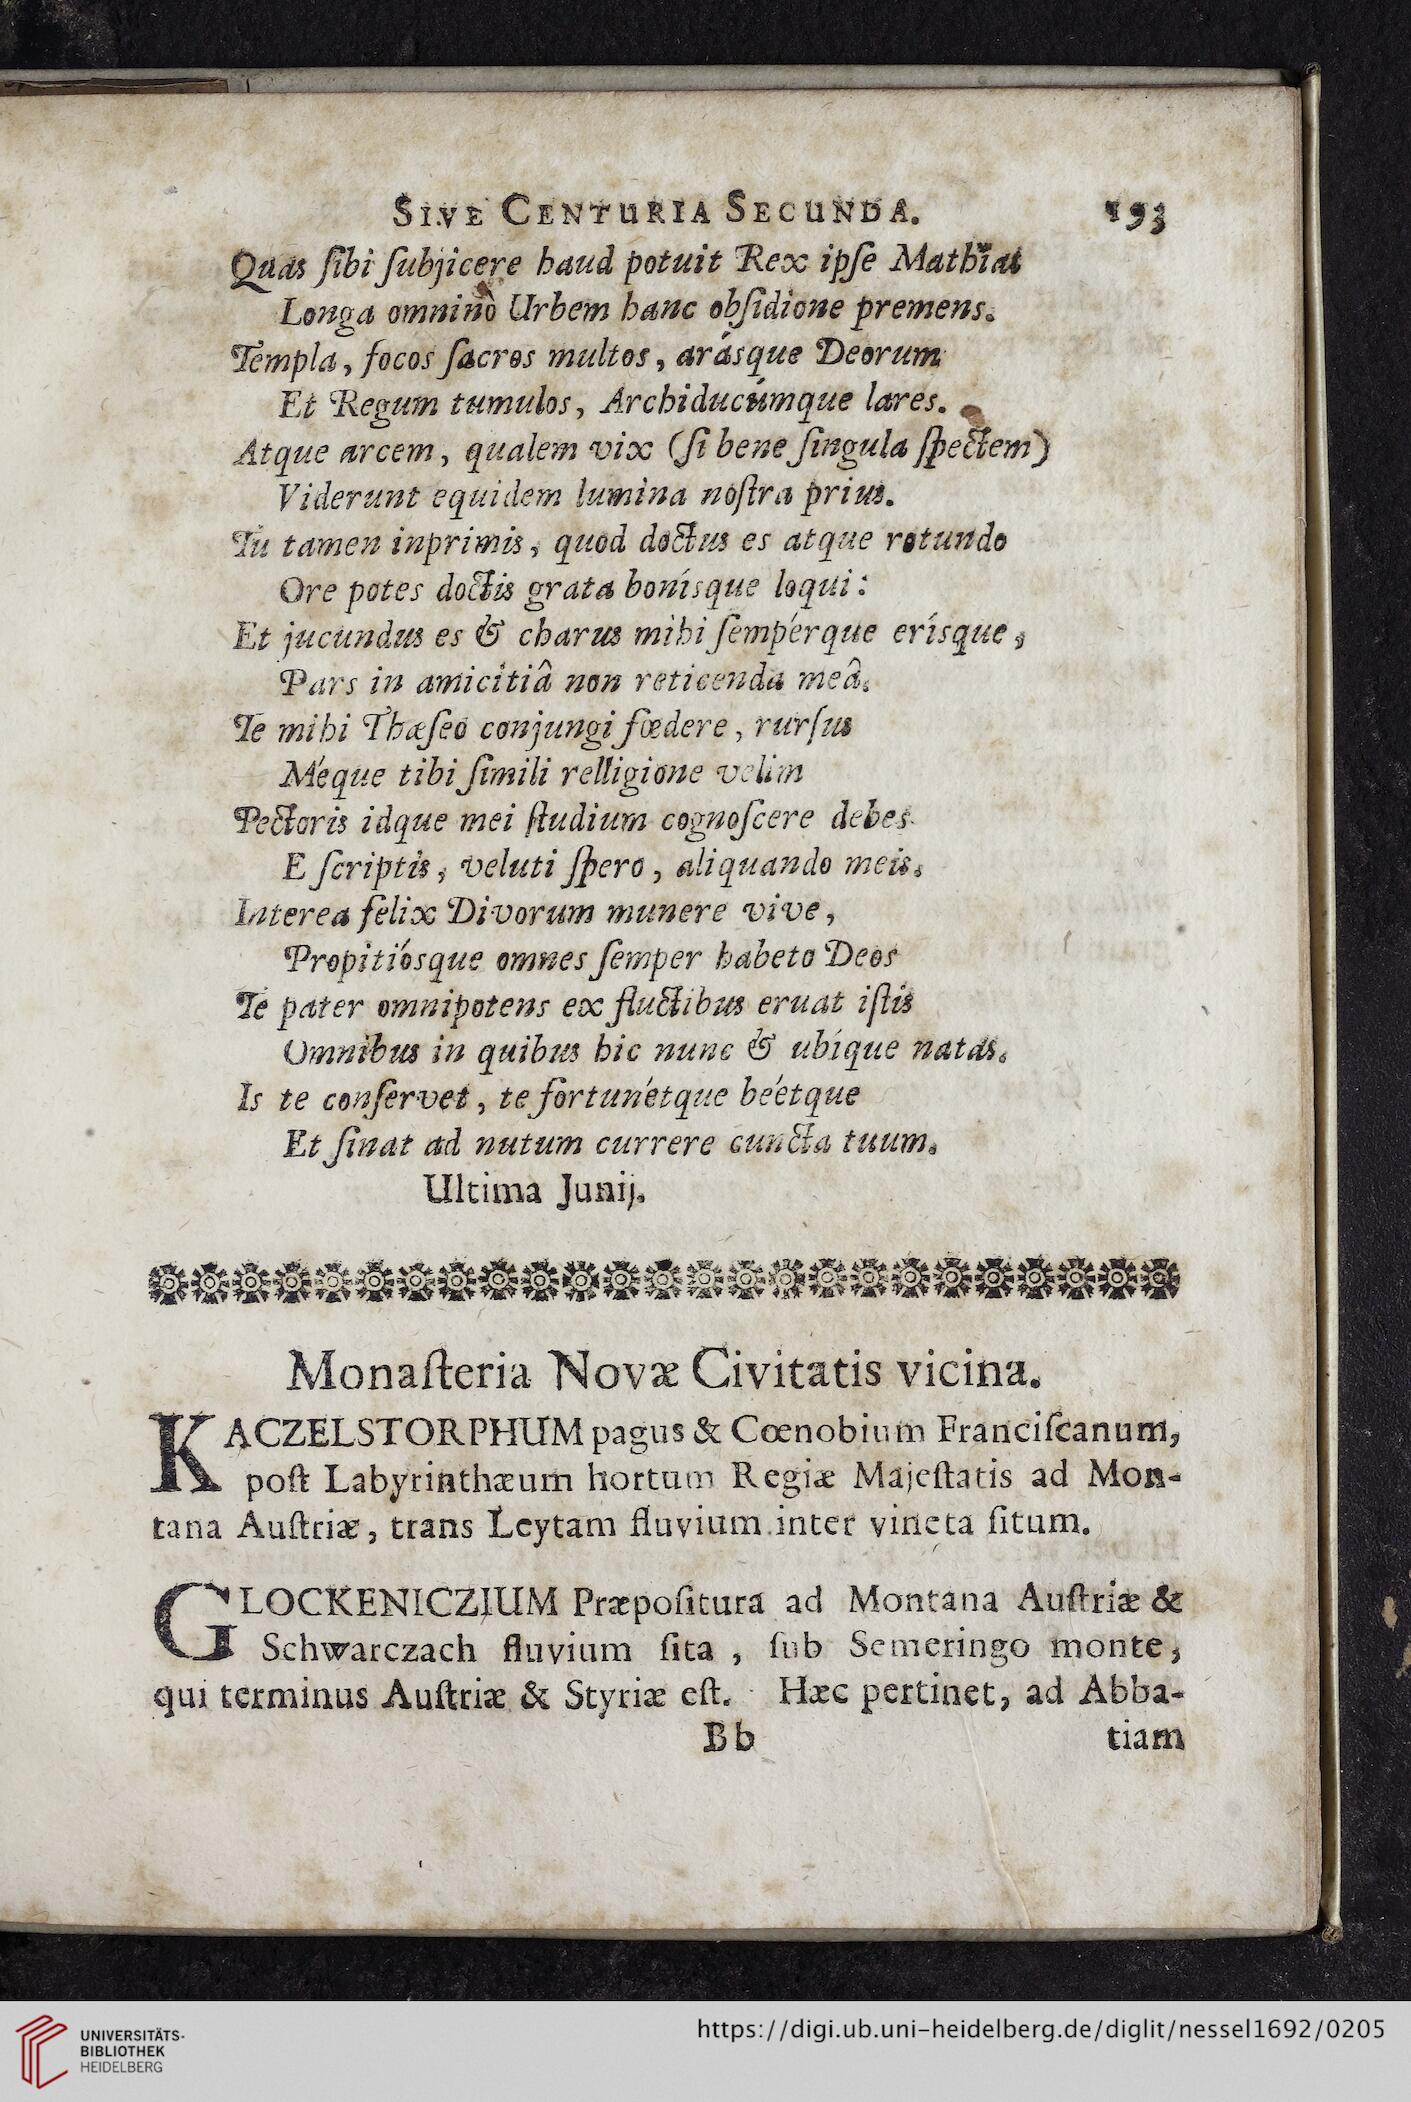 SIVE CENTURIA SECUNDA. 193
Quas ſibi ſubjicere haud potuit Rex ipſe Mathias
Longa omninò Urbem hanc obſidione premens.
Templa, focos ſacros multos, arásque Deorum
Et Regum tumulos, Archiducúmque lares.
Atque arcem, qualem vix (ſi bene ſingula ſpectem)
Viderunt equidem lumina noſtra prius.
Tu tamen inprimis, quod doctus es atque rotundo
Ore potes doctis grata bonísque loqui:
Et jucundus es & charus mihi ſempérque erísque,
Pars in amicitiâ non reticenda meâ.
Te mihi Thæſeo conjungi fœdere, rurſus
Méque tibi ſimili relligione velim
Pectoris idque mei ſtudium cognoſcere debes
E ſcriptis, veluti ſpero, aliquando meis.
Interea felix Divorum munere vive,
Propitiósque omnes ſemper habeto Deos
Te pater omnipotens ex fluctibus eruat iſtis
Omnibus in quibus hic nunc & ubíque natas.
Is te conſervet, te fortunétque beétque
Et ſinat ad nutum currere cuncta tuum.
Ultima Junij.
Monaſteria Novæ Civitatis vicina.
KACZELSTORPHUM pagus & Cœnobium Franciſcanum,
poſt Labyrinthæum hortum Regiæ Majeſtatis ad Mon-
tana Auſtriæ, trans Leytam fluvium inter vineta ſitum.
GLOCKENICZIUM Præpoſitura ad Montana Auſtriæ &
Schwarczach fluvium ſita, ſub Semeringo monte,
qui terminus Auſtriæ & Styriæ eſt. Hæc pertinet, ad Abba-
Bb tiam
UNIVERSITÄTS-
BIBLIOTHEK
HEIDELBERG
https://digi.ub.uni-heidelberg.de/diglit/nessel1692/0205